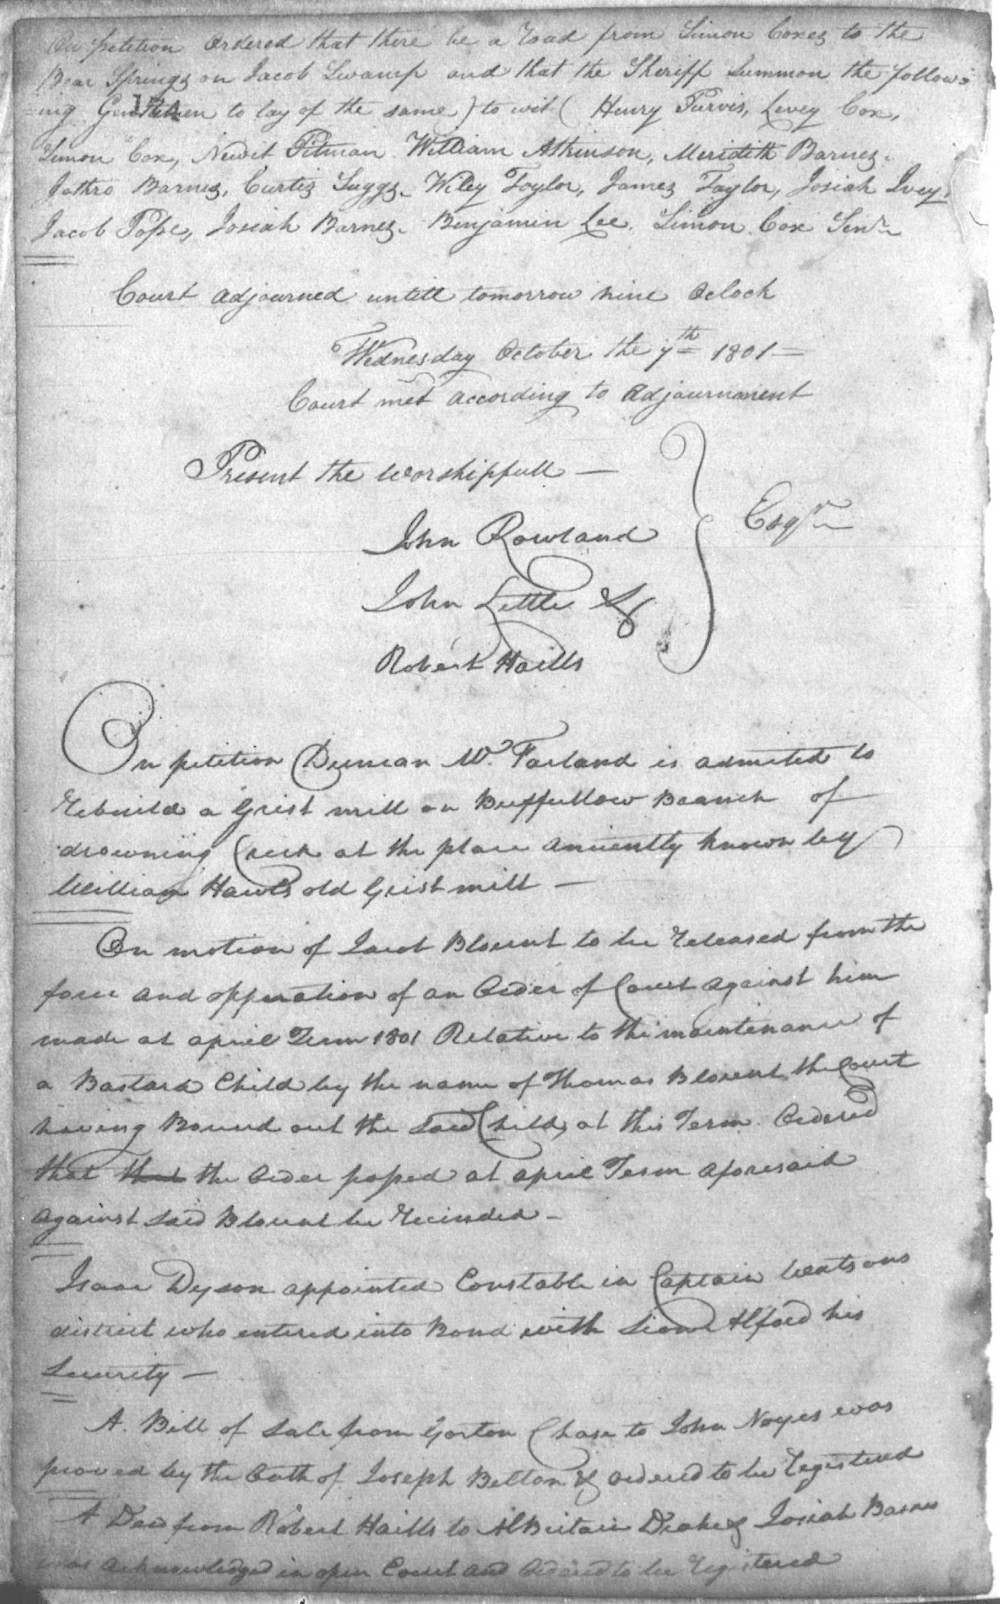 On petition Ordered that there be a road from Simon Coxes to the
Bear Springs on Jacob Swamp and that the Sheriff Summon the follow-
ing Gentlemen to lay of the same) to wit ( Henry Purvis, Levey Cox,
Simon Cox, Newit Pitman William Atkinson, Merideth Barnes.
Jathro Barnes, Curtis Suggs. Wiley Taylor, James Taylor, Josiah Ivey.
Jacob Pope, Josiah Barnes. Benjamin Lee. Simon Cox Senr
Court adjourned untill tomorrow nine Oclock
Wednesday October the 7th 1801
Court met according to Adjournment
Present the worshipfull —
John Rowland
John Little &
Robert Haills
Esqrs
On petition Duncan Mc. Farland is admited to
Rebuild a Grist mill on Buffullow Branch of
drowning Creek at the place anciently known by
William Hawls old Grist mill —
On motion of Jacob Blount to be Released from the
force and opperation of an Order of Court against him
made at april Term 1801 Relative to the maintenance of
a Bastard Child by the name of Thomas Blount the Court
having Bound out the said Child, at this Term. Ordered
that that the Order passed at april Term aforesaid
against said Blount be recinded —
Isaac Dyson appointed Constable in Captain Watsons
district who entered into Bond with Alford his
Security —
A. Bill of Sale from Gorton Chase to John Noyes was
proved by the Oath of Joseph Belton & ordered to be registered
A Deed from Robert Haills to AlBritain Drake & Josiah Barnes
was acknowledged in open Court and Ordered to be Registered